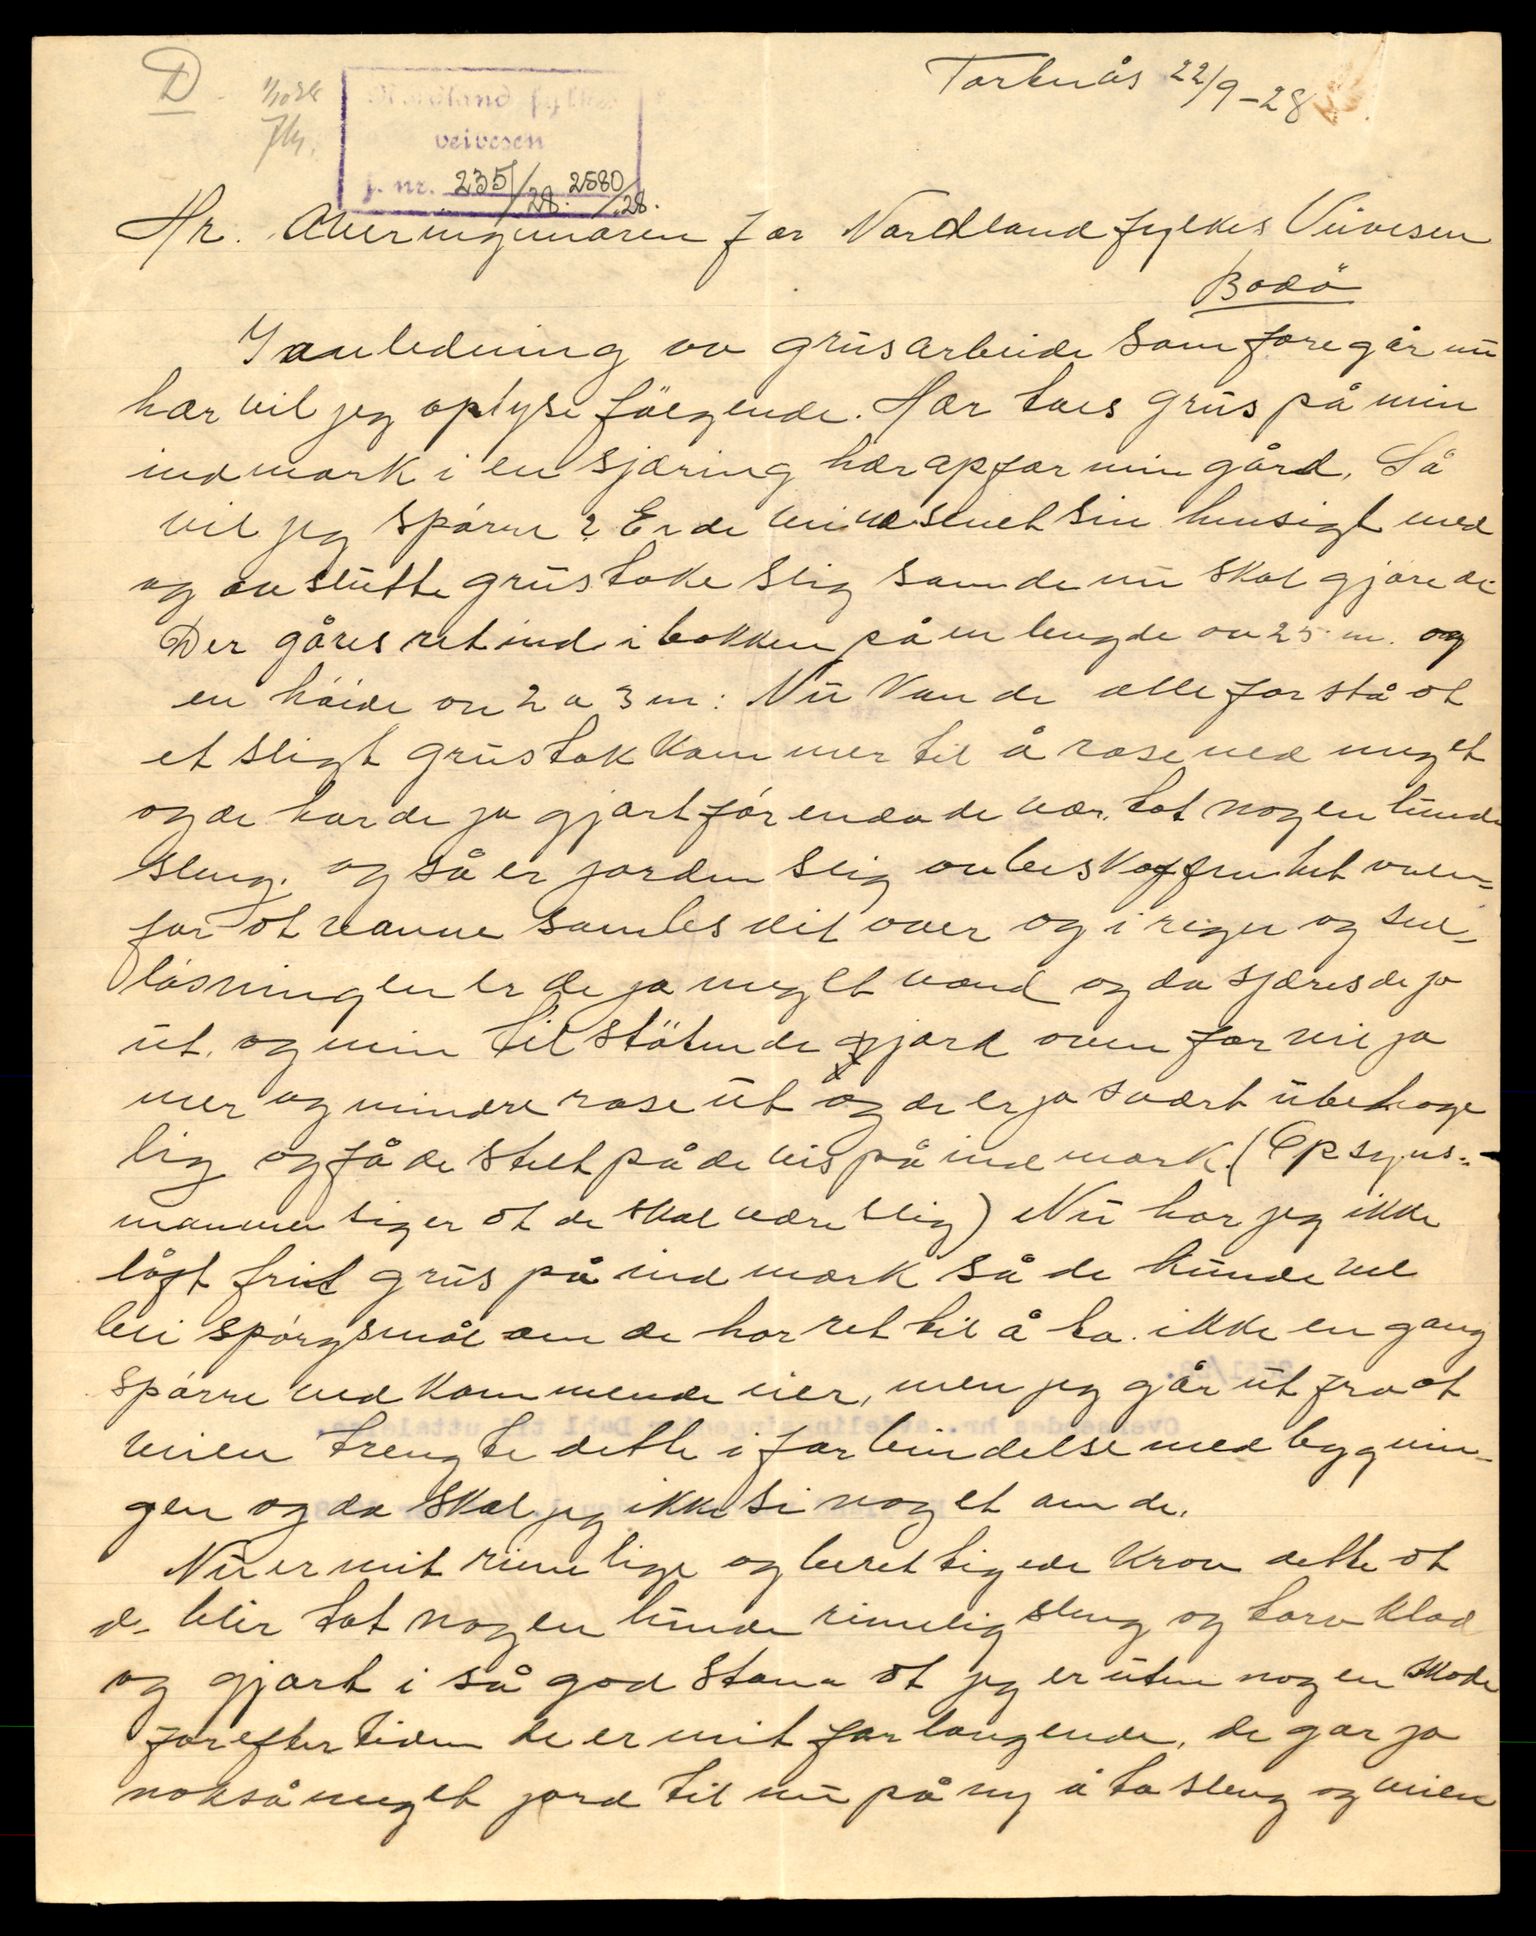 D
1/10 28
Torknås 22/9-28
Nordland fylkes
veivesen
j. nr. 235/28. 2580/28.
Hr. Overingeniøren for Nordland fylkes Veivesen
Bodö
I anledning av grusarbeide som foregår nu
her vil jeg oplyse fölgende. Her taes grus på min
indmark i en sjæring her opfor min gård. Så
vil jeg spörre? Er de veivesenet sin hensigt med
og avslutte grustake slig som de nu skal gjøre de.
Der gåres ret ind i bakken på en lengde av 25 m. og
en höide av 2 a 3 m: Nu kan de alle forstå at
et sligt grustak kommer til å rase ned meget
og de har de ja gjort för enda de var tat nogenlunde
sleng. og så er jorden slig av beskaffenhet oven=
for at vanne samles dit over og i regn og sne-
lösningen er de ja meget vand og da sjæres de ja
ut. og min tilstötende jord oven for vil ja
mer og mindre rase ut og de er ja svært ubehage
lig og få de stelt på de vis på indmark. (Opsyns=
mannen siger at de skal være slig) Nu har jeg ikke
låft frit grus på indmark så de kunde vel
bli spörgsmål om de har ret til å ta. ikke en gang
spörre vedkommende eier, men jeg går ut fra at
veien trengte dette i forbindelse med bygnin-
gen og da skal jeg ikke si noget om de.
Nu er mit rimelige og berettigede krav dette at
de blir tat nogenlunde rimelig sleng og torvklad
og gjort i så god stand at jeg er uten nogen skade
for eftertiden de er mit forlangende, de gar ja
nokså meget jord til nu på ny å ta sleng og veien